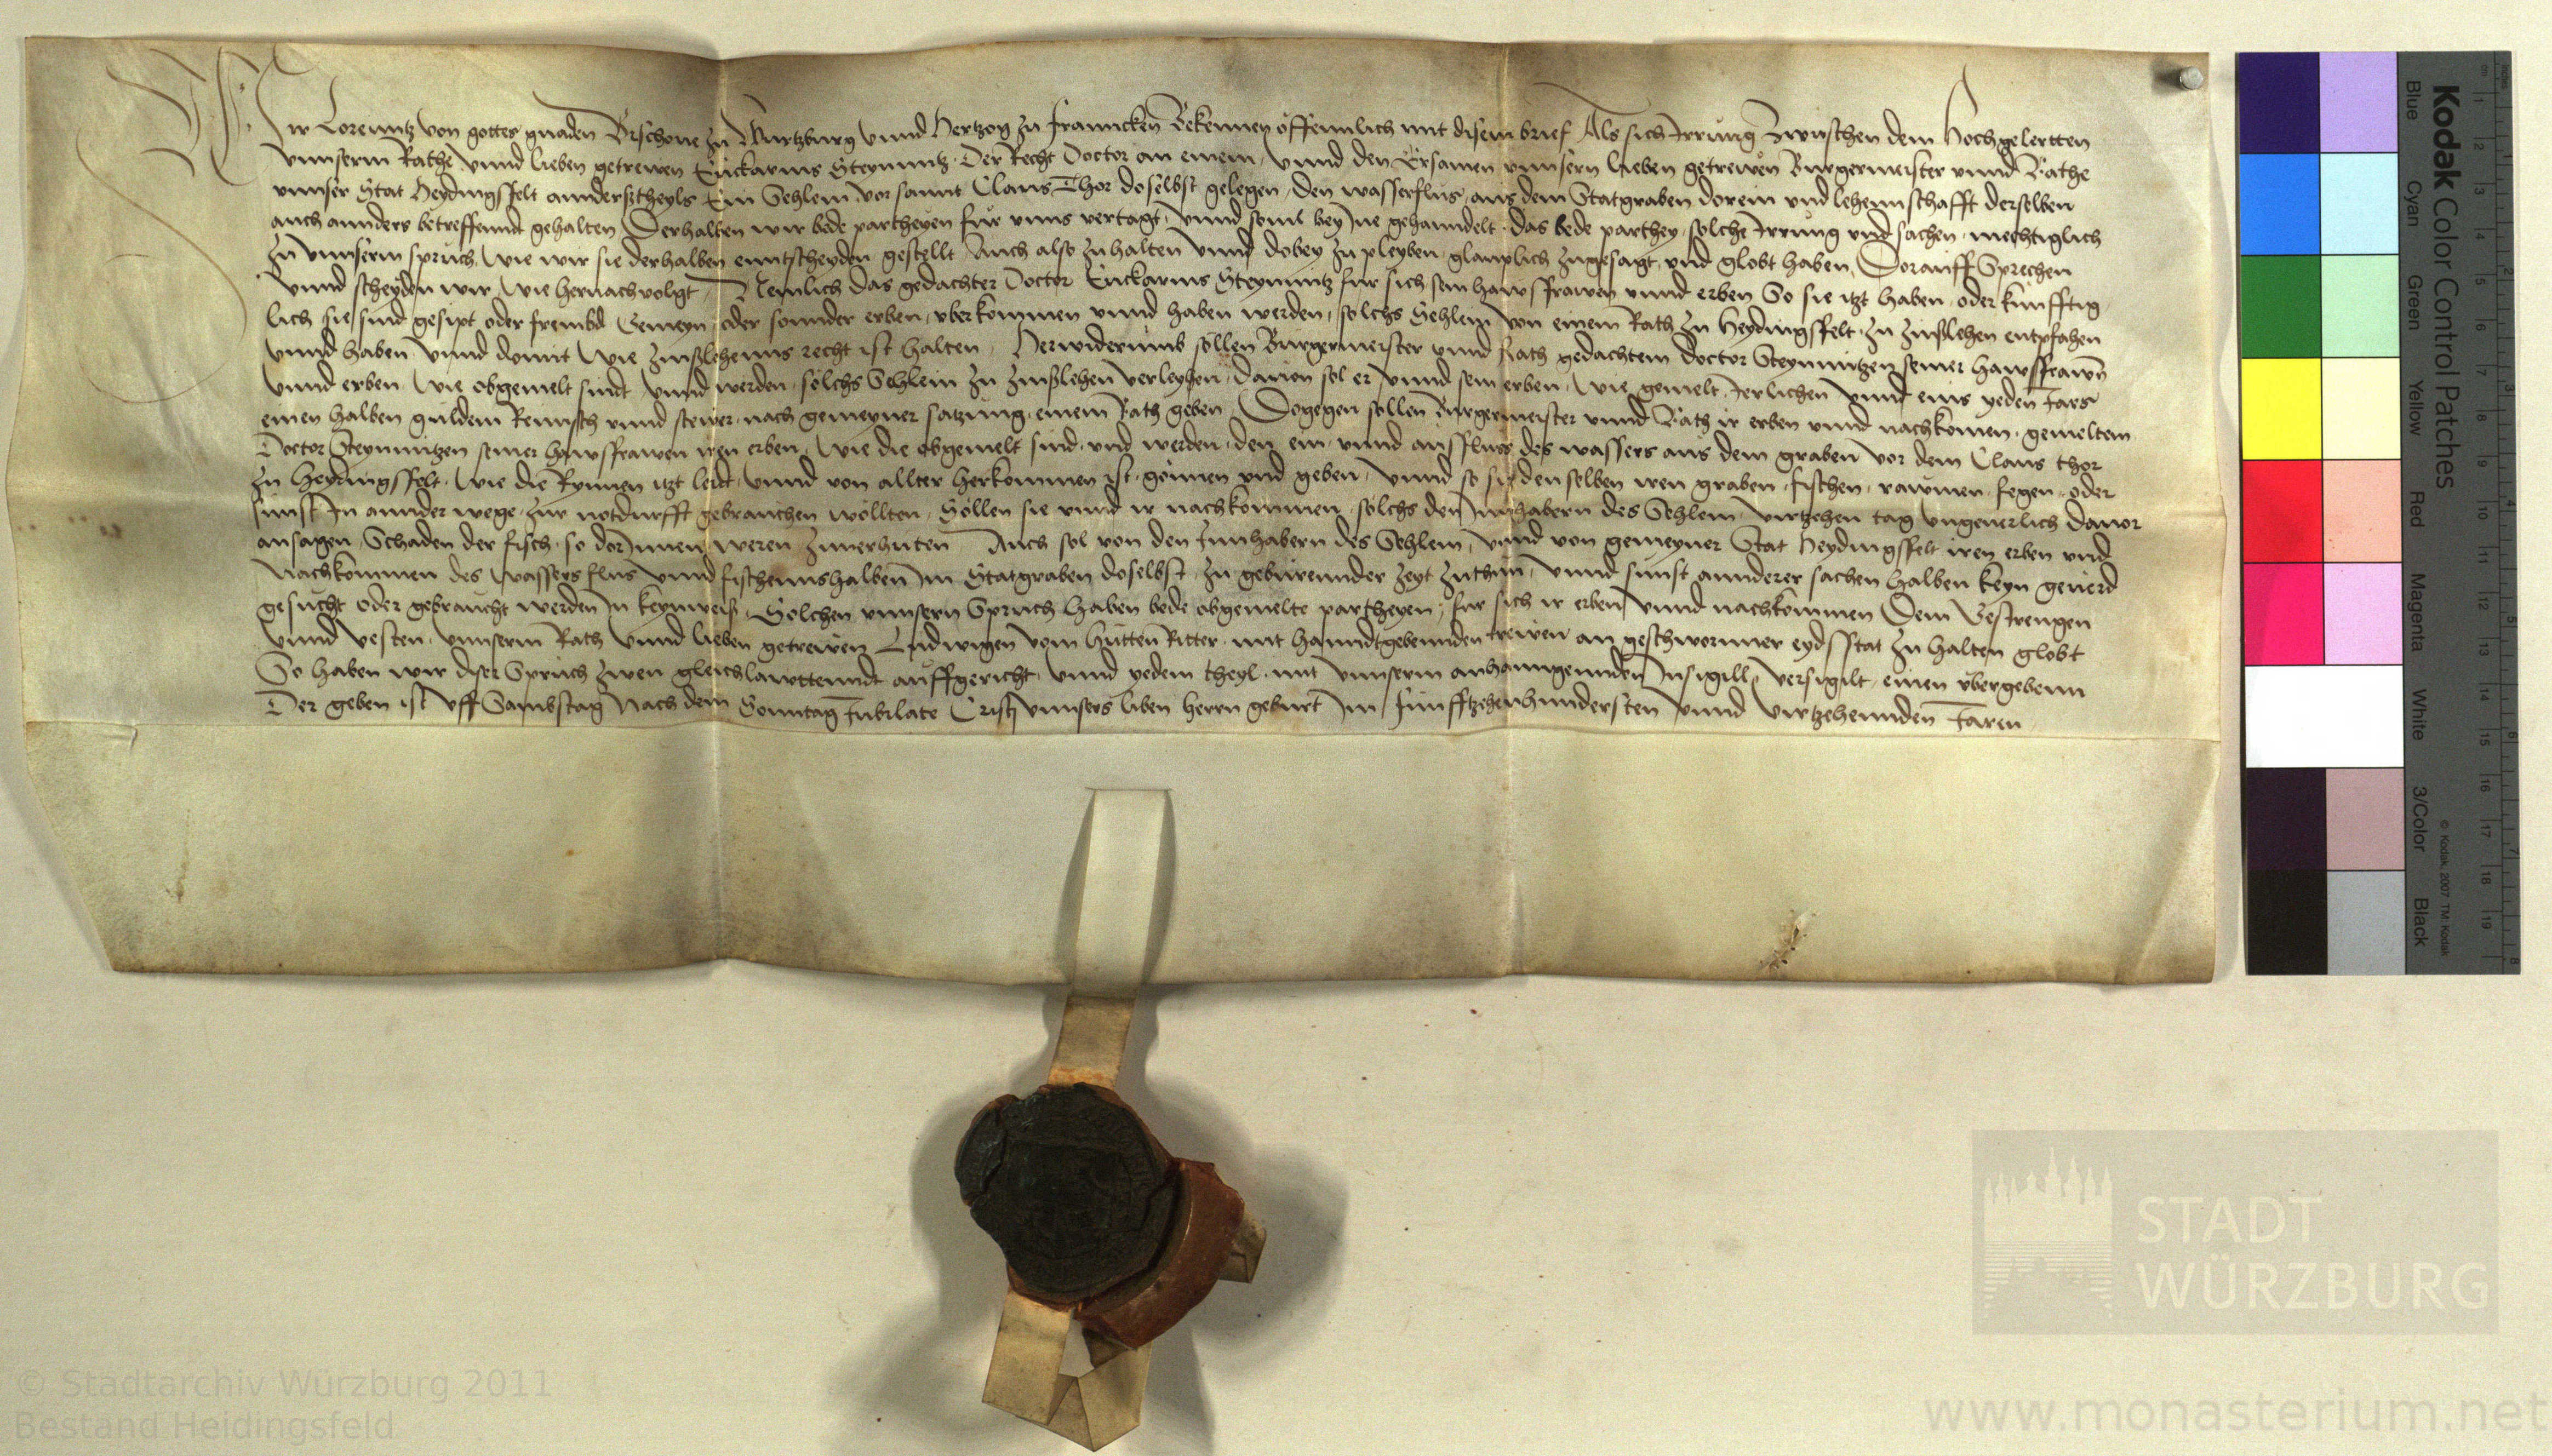 Wir Lorenntz von gottes gnaden Bischoue zu Wurtzburg vnnd Hertzog zu Franncken Bekennen offennlich mit disem brief Als sich Irrung Zwischen dem Hochgelertten
vnnserm Rathe vnnd lieben getrewen Euckarius Steynmitz Der Recht Doctor an einem, vnnd den Ersamen vnnsern lieben getrewen Burgermeister vnnd Rathe
vnnser Stat Heydingsfelt annderßtheyls Ein Sehlein vor sannt Claus Thor doselbst gelegen, den wasserflus, aus dem Statgraben dorein vnd lehennschafft derselben
auch annders betreffennd gehalten Derhalben wir bede partheyen für vnns vertagt, vnnd souil bey Ine gehanndelt, das bede parthey solche Irrung vnd sachen mechtiglich
zu vnnserm spruch, wie wir sie derhalben enntscheyden gestellt Auch also zuhalten vnnd dobey zu pleyben, glauplich zugesagt, vnd globt haben, Dorauff Sprechen
vnnd scheyden wir, wie hernachuolgt, Nemlich das gedachter Doctor Euckarius Steynmitz für sich sein hawsfrawen vnnd erben So sie itzt haben, oder künfftig
lich sie sind gesipt oder frembd Gemeyn oder sonnder erben, vberkommen vnnd haben werden, solchs Sehlein von einem Rath zu Heydingsfelt, zu zinßlehen entpfahen
vnnd haben vnnd domit wie zinßlehenns recht ist halten, Herwiderumb sollen Burgermeister vnnd Rath gedachtem doctor Steynmitzen seiner hawsfrawen
vnnd erben, wie obgemelt sindt, vnnd werden, solchs Sehlein zu zinßlehen verleyhen, dauon sol er vnnd sein erben, wie gemelt, Ierlichen vnnd eins yeden Iars
einen halben gulden Reinisch vnnd stewer, nach gemeyner satzung, einem Rath geben, Dogegen sollen Burgermeister vnnd Rath ir erben vnnd nachkomen, gemeltem
Doctor Steynmitzen seiner hawsfrawen iren erben, wie die obgemelt sind, vnd werden, den ein, vnnd ausfluss des wassers aus dem graben vor dem Claus thor
zu Heydingsfelt, wie die Rynnen itzt leidt, vnnd von allter herkommen ist, gönnen vnd geben, vnnd so sie denselben iren graben, fischen, rawmen, fegen, oder
sünst In annder wege, zur notdurfft gebrauchen wöllten, Söllen sie vnnd ir nachkommen, solchs den Innhabern des Sehlein, virtzehen tag vngeuerlich dauor
ansagen, Schaden der fisch, so dorInnen weren zuuerhüten Auch sol von den Innhabern des Sehlein, vnnd von gemeyner Stat Heydingsfelt iren erben vnd
Nachkommen des wassersflus vnnd fischennshalben im Statgraben doselbst, zu gebürennder zeyt zuthun, vnnd sünst annderer sachen halben keyn geuerd
gesucht oder gebraucht werden In keynweiß, Solchen vnnsern Spruch haben bede obgemelte partheyen, für sich ir erben vnnd nachkommen Dem Gestrengen
vnnd vesten, vnnserm Rath vnnd lieben getrewen Ludwigen vom Hutten Ritter, mit hanndtgebennden trewen an geschworner eydsstat zu halten globt
So haben wir diser Spruch zwen gleichlawttenndt auffgericht, vnnd yedem theyl, mit vnnserm anhanngennden Insigill, versigilt, einen vbergebenn
Der geben ist vff Sambstag Nach dem Sonntag Iubilate Cristj vnnsers liben herrn geburt im Funfftzehenhundersten vnnd virtzehennden Iaren
Kodak Color Control Patches
Blue Cyan Green Yellow Red Magenta White 3/Color Black
© Kodak, 2007 TM: Kodak
STADT
WÜRZBURG
© Stadtarchiv Würzburg 2011
Bestand Heidingsfeld
www.monasterium.net